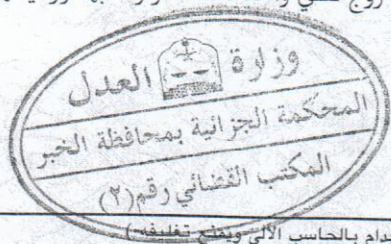 وزارة العدل
المحكمة الجزائية بمحافظة الخبر
المكتب القضائي رقم (٢)
بالحاسب الآلي ويمنع تغليفه)